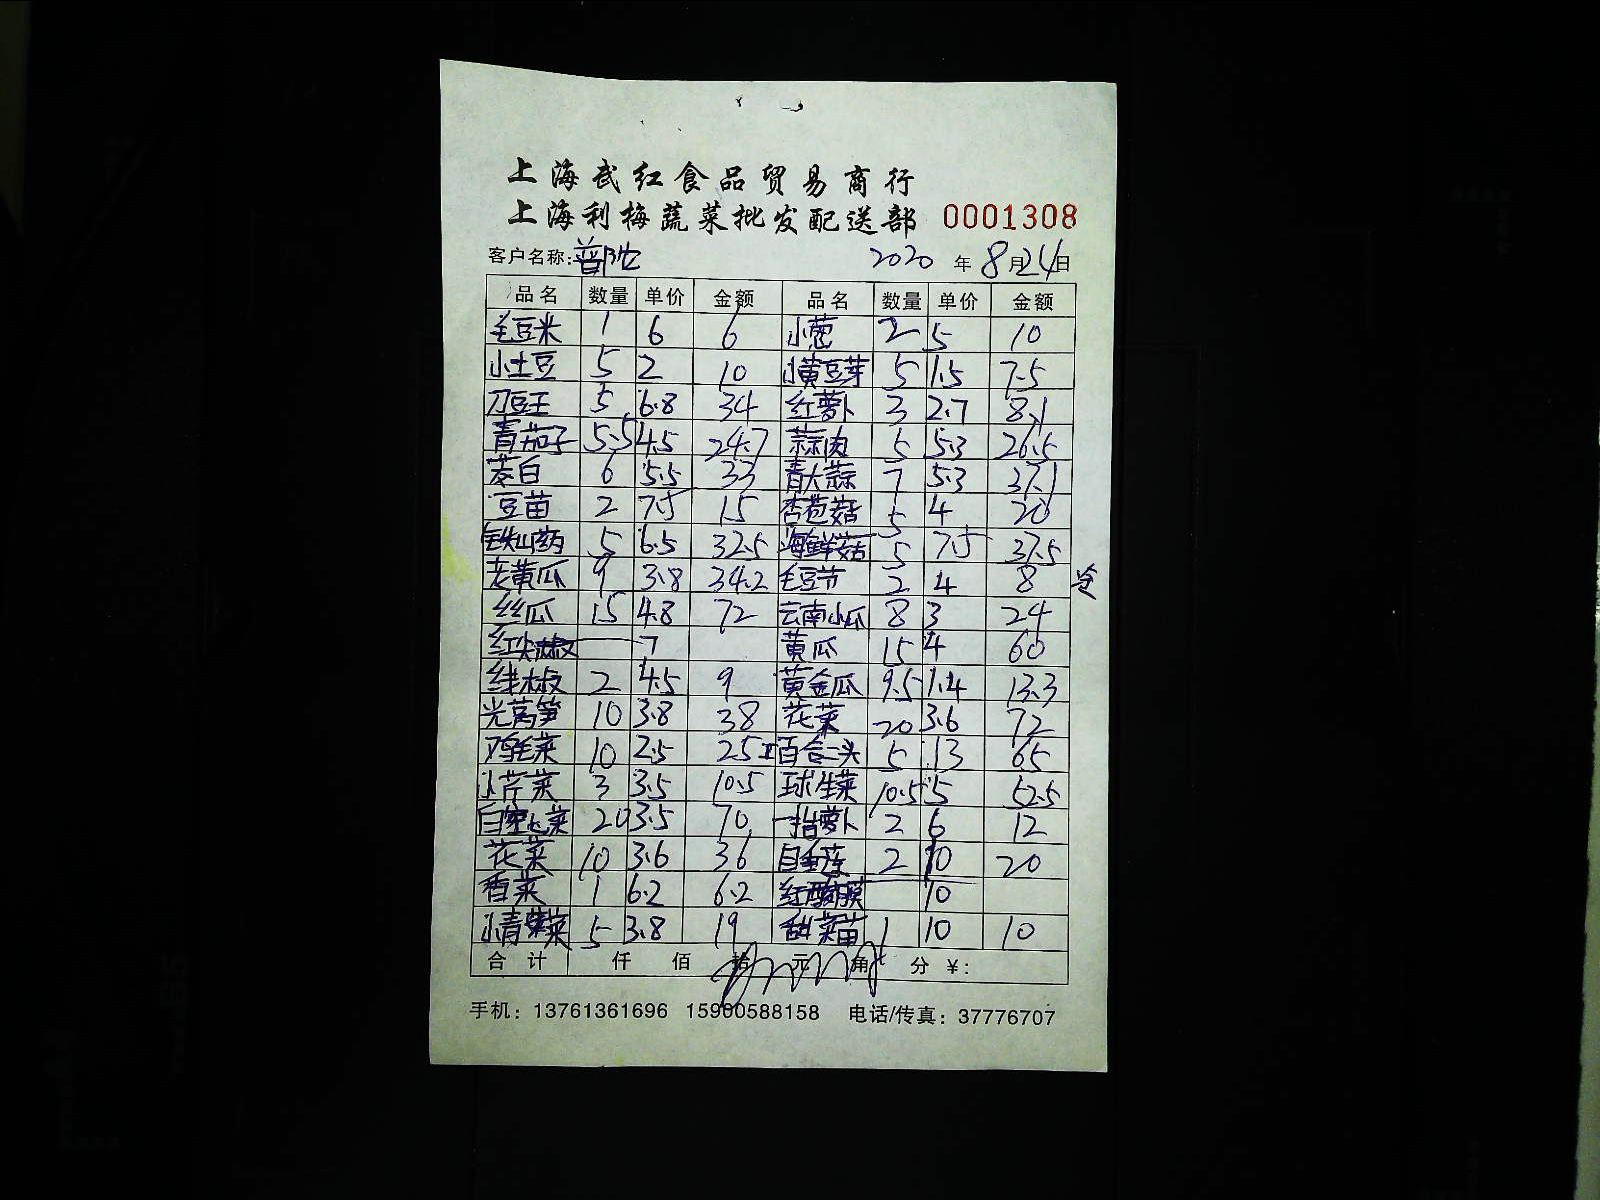 上海武红食品贸易商行
上海利梅蔬菜批发配送部 0001308
客户名称:普陀 2020 年 8 月 24 日
品名 数量 单价 金额 品名 数量 单价 金额
毛豆米 1 6 6 小葱 2 5 10
小土豆 5 2 10 小黄豆芽 5 1.5 7.5
刀豆王 5 6.8 34 红萝卜 3 2.7 8.1
青茄子 5.5 4.5 24.7 蒜肉 5 5.3 26.5
茭白 6 5.5 33 青大蒜 7 5.3 37.1
豆苗 2 7.5 15 杏苞菇 5 4 20
铁山药 5 6.5 32.5 海鲜菇 5 7.5 37.5
老黄瓜 9 3.8 34.2 毛豆节 2 4 8
丝瓜 15 4.8 72 云南小瓜 8 3 24
红尖椒 7 黄瓜 15 4 60
线椒 2 4.5 9 黄金瓜 9.5 1.4 13.3
光莴笋 10 3.8 38 花菜 20 3.6 72
鸡毛菜 10 2.5 25 百合头 5 13 65
小芹菜 3 3.5 10.5 球生菜 10.5 5 52.5
白空心菜 20 3.5 70 一指萝卜 2 6 12
花菜 10 3.6 36 2 10 20
香菜 1 6.2 6.2 10
小青菜 5 3.8 19 菜苗 1 10 10
合计 仟 佰 拾 元 角 分 ¥:
手机：13761361696 15900588158 电话/传真：37776707